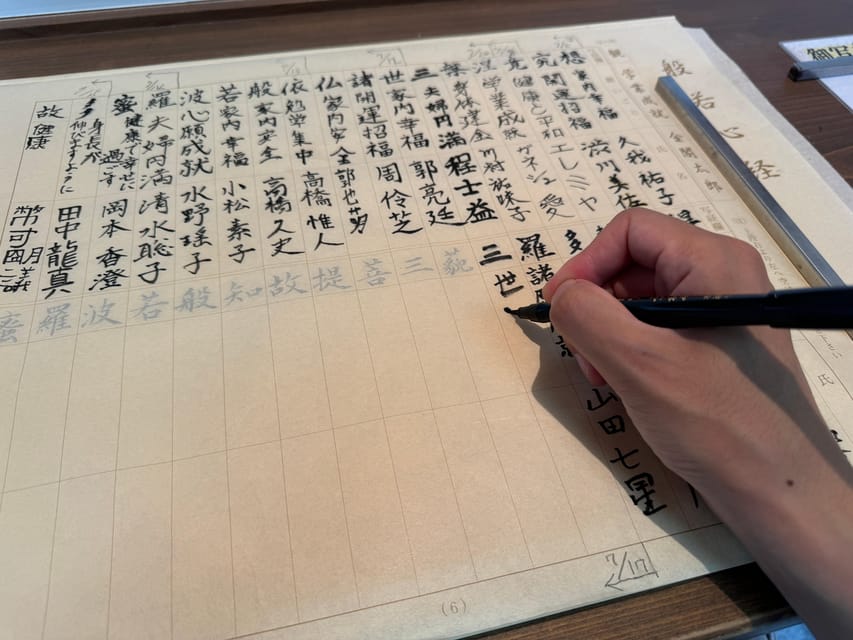 般若心経
観 学業成就 金閣太郎
想 家内幸福 久我祐子
究 開運招福 渋川美佐
竟 健康と平和 エレミヤ
涅 学業成就 ガネシェ 愛
槃 身体健全 川村祐味子
三 夫婦円満 程士益
世 家内幸福 郭亮廷
諸 開運招福 周伶芝
仏 家内安全
依 勉学集中 高橋惟人
般 家内安全 高橋久史
若 家内幸福 小松素子
波 心願成就 水野瑶子
羅 夫婦円満 清水聡子
蜜 健康で幸せに過ごす 岡本香澄
多 身長が伸びますように 田中龍真
故 健康
多
羅 諸
山田七星
三世
藐
三
菩
提
故
知
般
若
波
羅
蜜
7/17
(6)